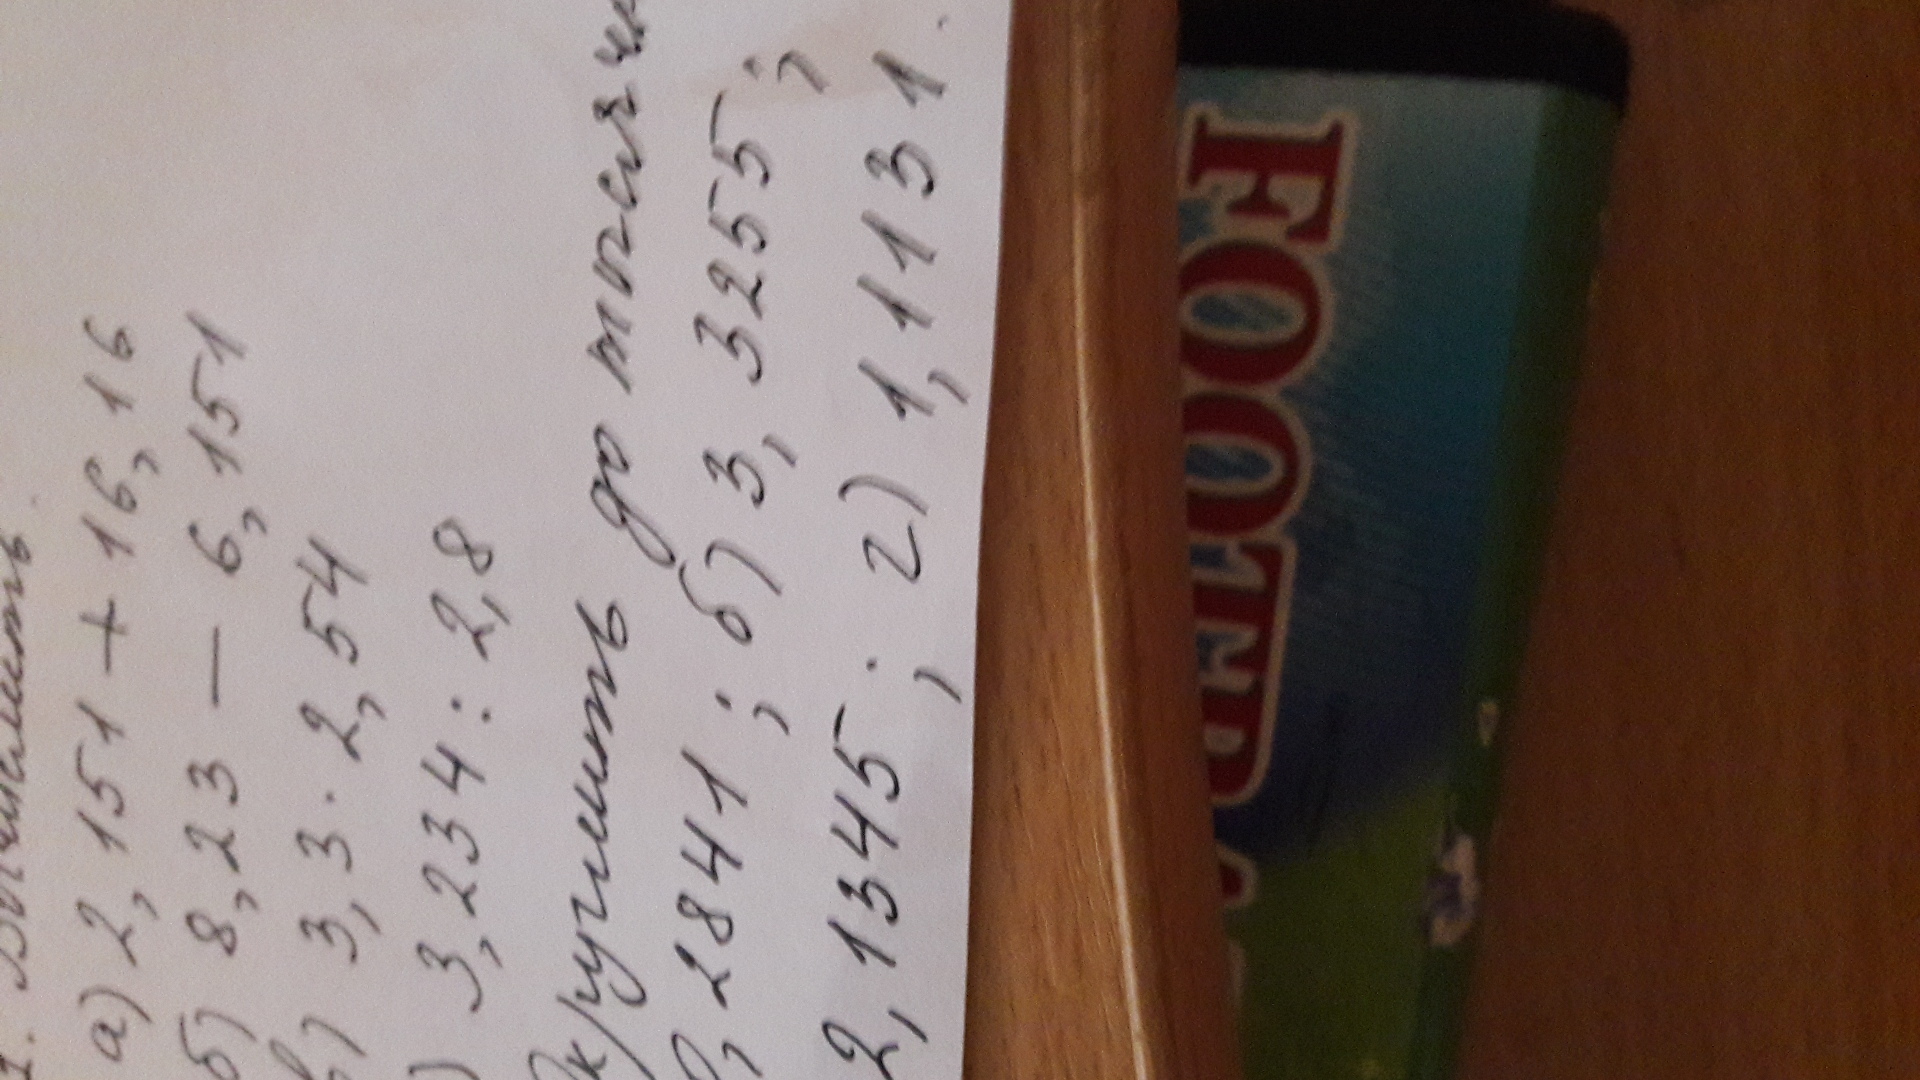 1. Вычислить.
а) 2,151 + 16,16
б) 8,23 - 6,151
в) 3,3 · 2,54
) 3,234 : 2,8
Округлить до
,2841; б) 3,3255;
2,1345; г) 1,1131.